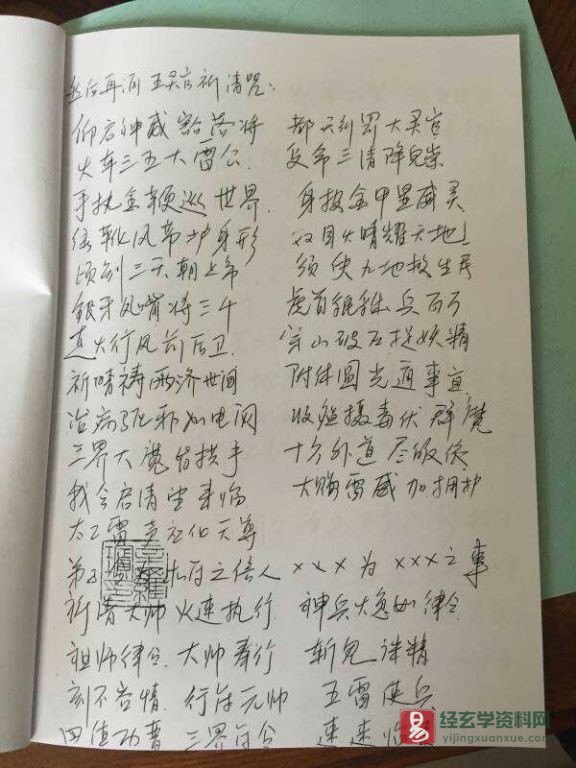 然后再诵王灵官祈请咒:
仰启神威豁落将 都天纠罚大灵官
火车三五大雷公 受命三清降鬼祟
手执金鞭巡世界 身披金甲呈威灵
绿靴风带护身形 双目火睛耀天地
顷刻三天朝上帝 须臾九地救生民
银牙凤嘴将三千 虎首貔貅兵百万
走火行风前后卫 穿山破石捉妖精
祈晴祷雨济世间 附体圆光通事宜
治病驱邪如电闪 收瘟摄毒伏群魔
三界大魔皆拱手 十方外道尽皈依
我今启请望来临 大赐雷威加拥护
太乙雷声应化天尊
弟子 之信人 xxx 为 xxx 之事
祈请大帅火速执行 神兵火急如律令
祖师律令 大帅奉行 斩鬼诛精
刻不容情 行符元帅 五雷使兵
四值功曹 三界符合 速速临
易 经玄学资料网
yijingxuanxue.com